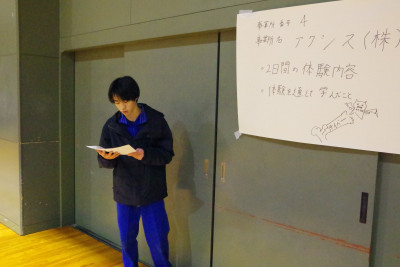 事業所番号 4
事業所名 アクシス(株)
・2日間の体験内容
・体験を通して学んだこと